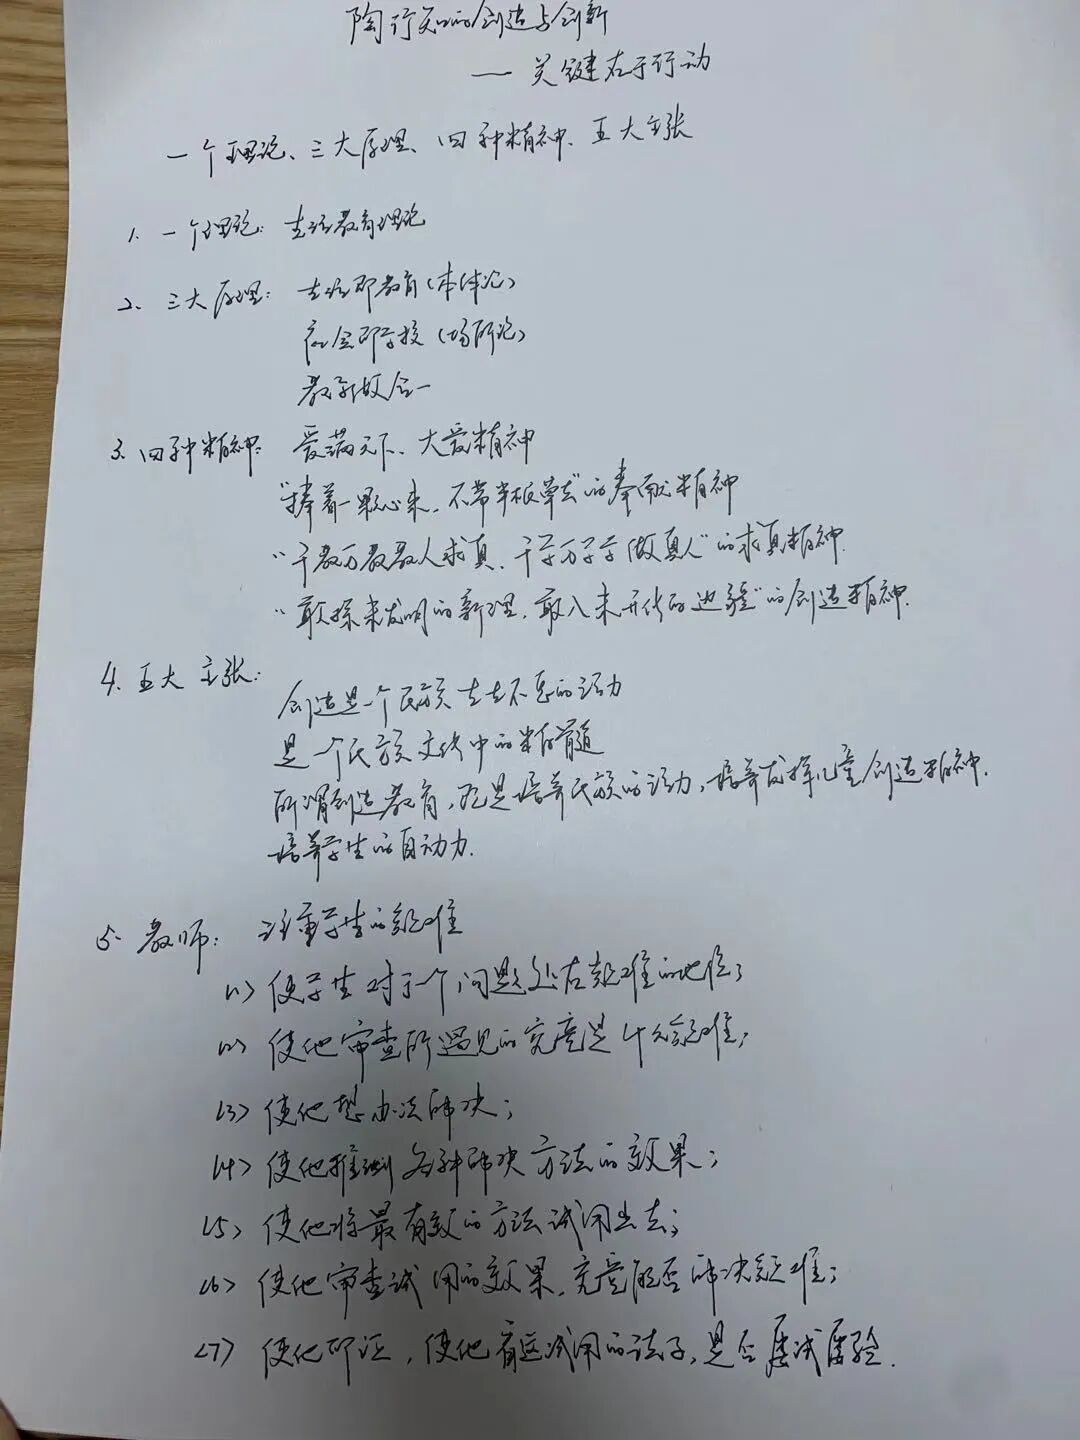 陶行知的创造与创新
— 关键在于行动
一个理论、三大原理、四种精神、五大主张
1. 一个理论：生活教育理论
2、三大原理：生活即教育（本体论）
社会即学校（场所论）
教学做合一
3、四种精神：爱满天下、大爱精神
“捧着一颗心来，不带半根草去”的奉献精神
“千教万教教人求真，千学万学学做真人”的求真精神.
“敢探未发明的新理，敢入未开化的边疆”的创造精神.
4. 五大主张：
创造是一个民族生生不息的活力
是一个民族文化中的精髓
所谓创造教育，就是培养民族的活力，培养发挥儿童创造精神.
培养学生的自动力.
5. 教师：注重学生的疑难
(1) 使学生对于一个问题处在疑难的地位；
(2) 使他审查所遇见的究竟是什么疑难；
(3) 使他想办法解决；
(4) 使他推测各种解决方法的效果；
(5) 使他将最有效的方法试用出去；
(6) 使他审查试用的效果，究竟能否解决疑难；
(7) 使他印证，使他看这试用的法子，是否屡试屡验.